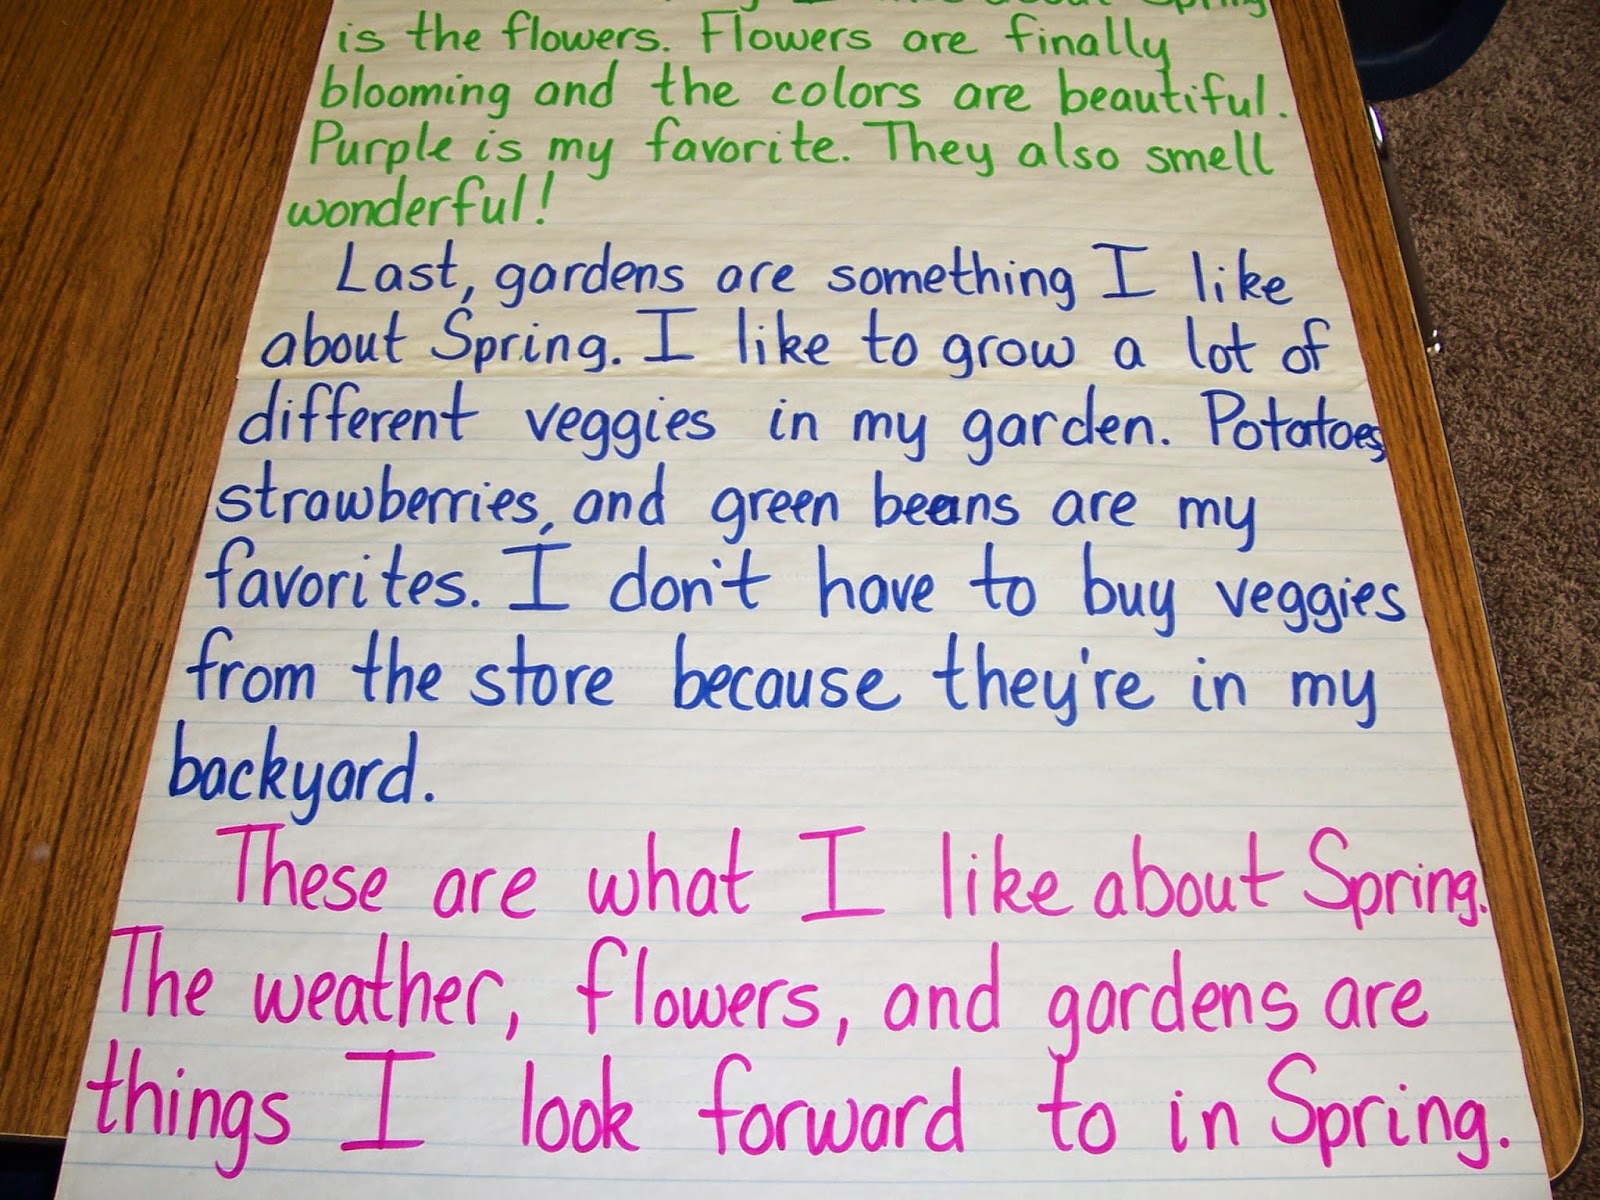 I about Spring
is the flowers. Flowers are finally
blooming and the colors are beautiful.
Purple is my favorite. They also smell
wonderful!
Last, gardens are something I like
about Spring. I like to grow a lot of
different veggies in my garden. Potatoes,
strawberries, and green beans are my
favorites. I don't have to buy veggies
from the store because they're in my
backyard.
These are what I like about Spring.
The weather, flowers, and gardens are
things I look forward to in Spring.